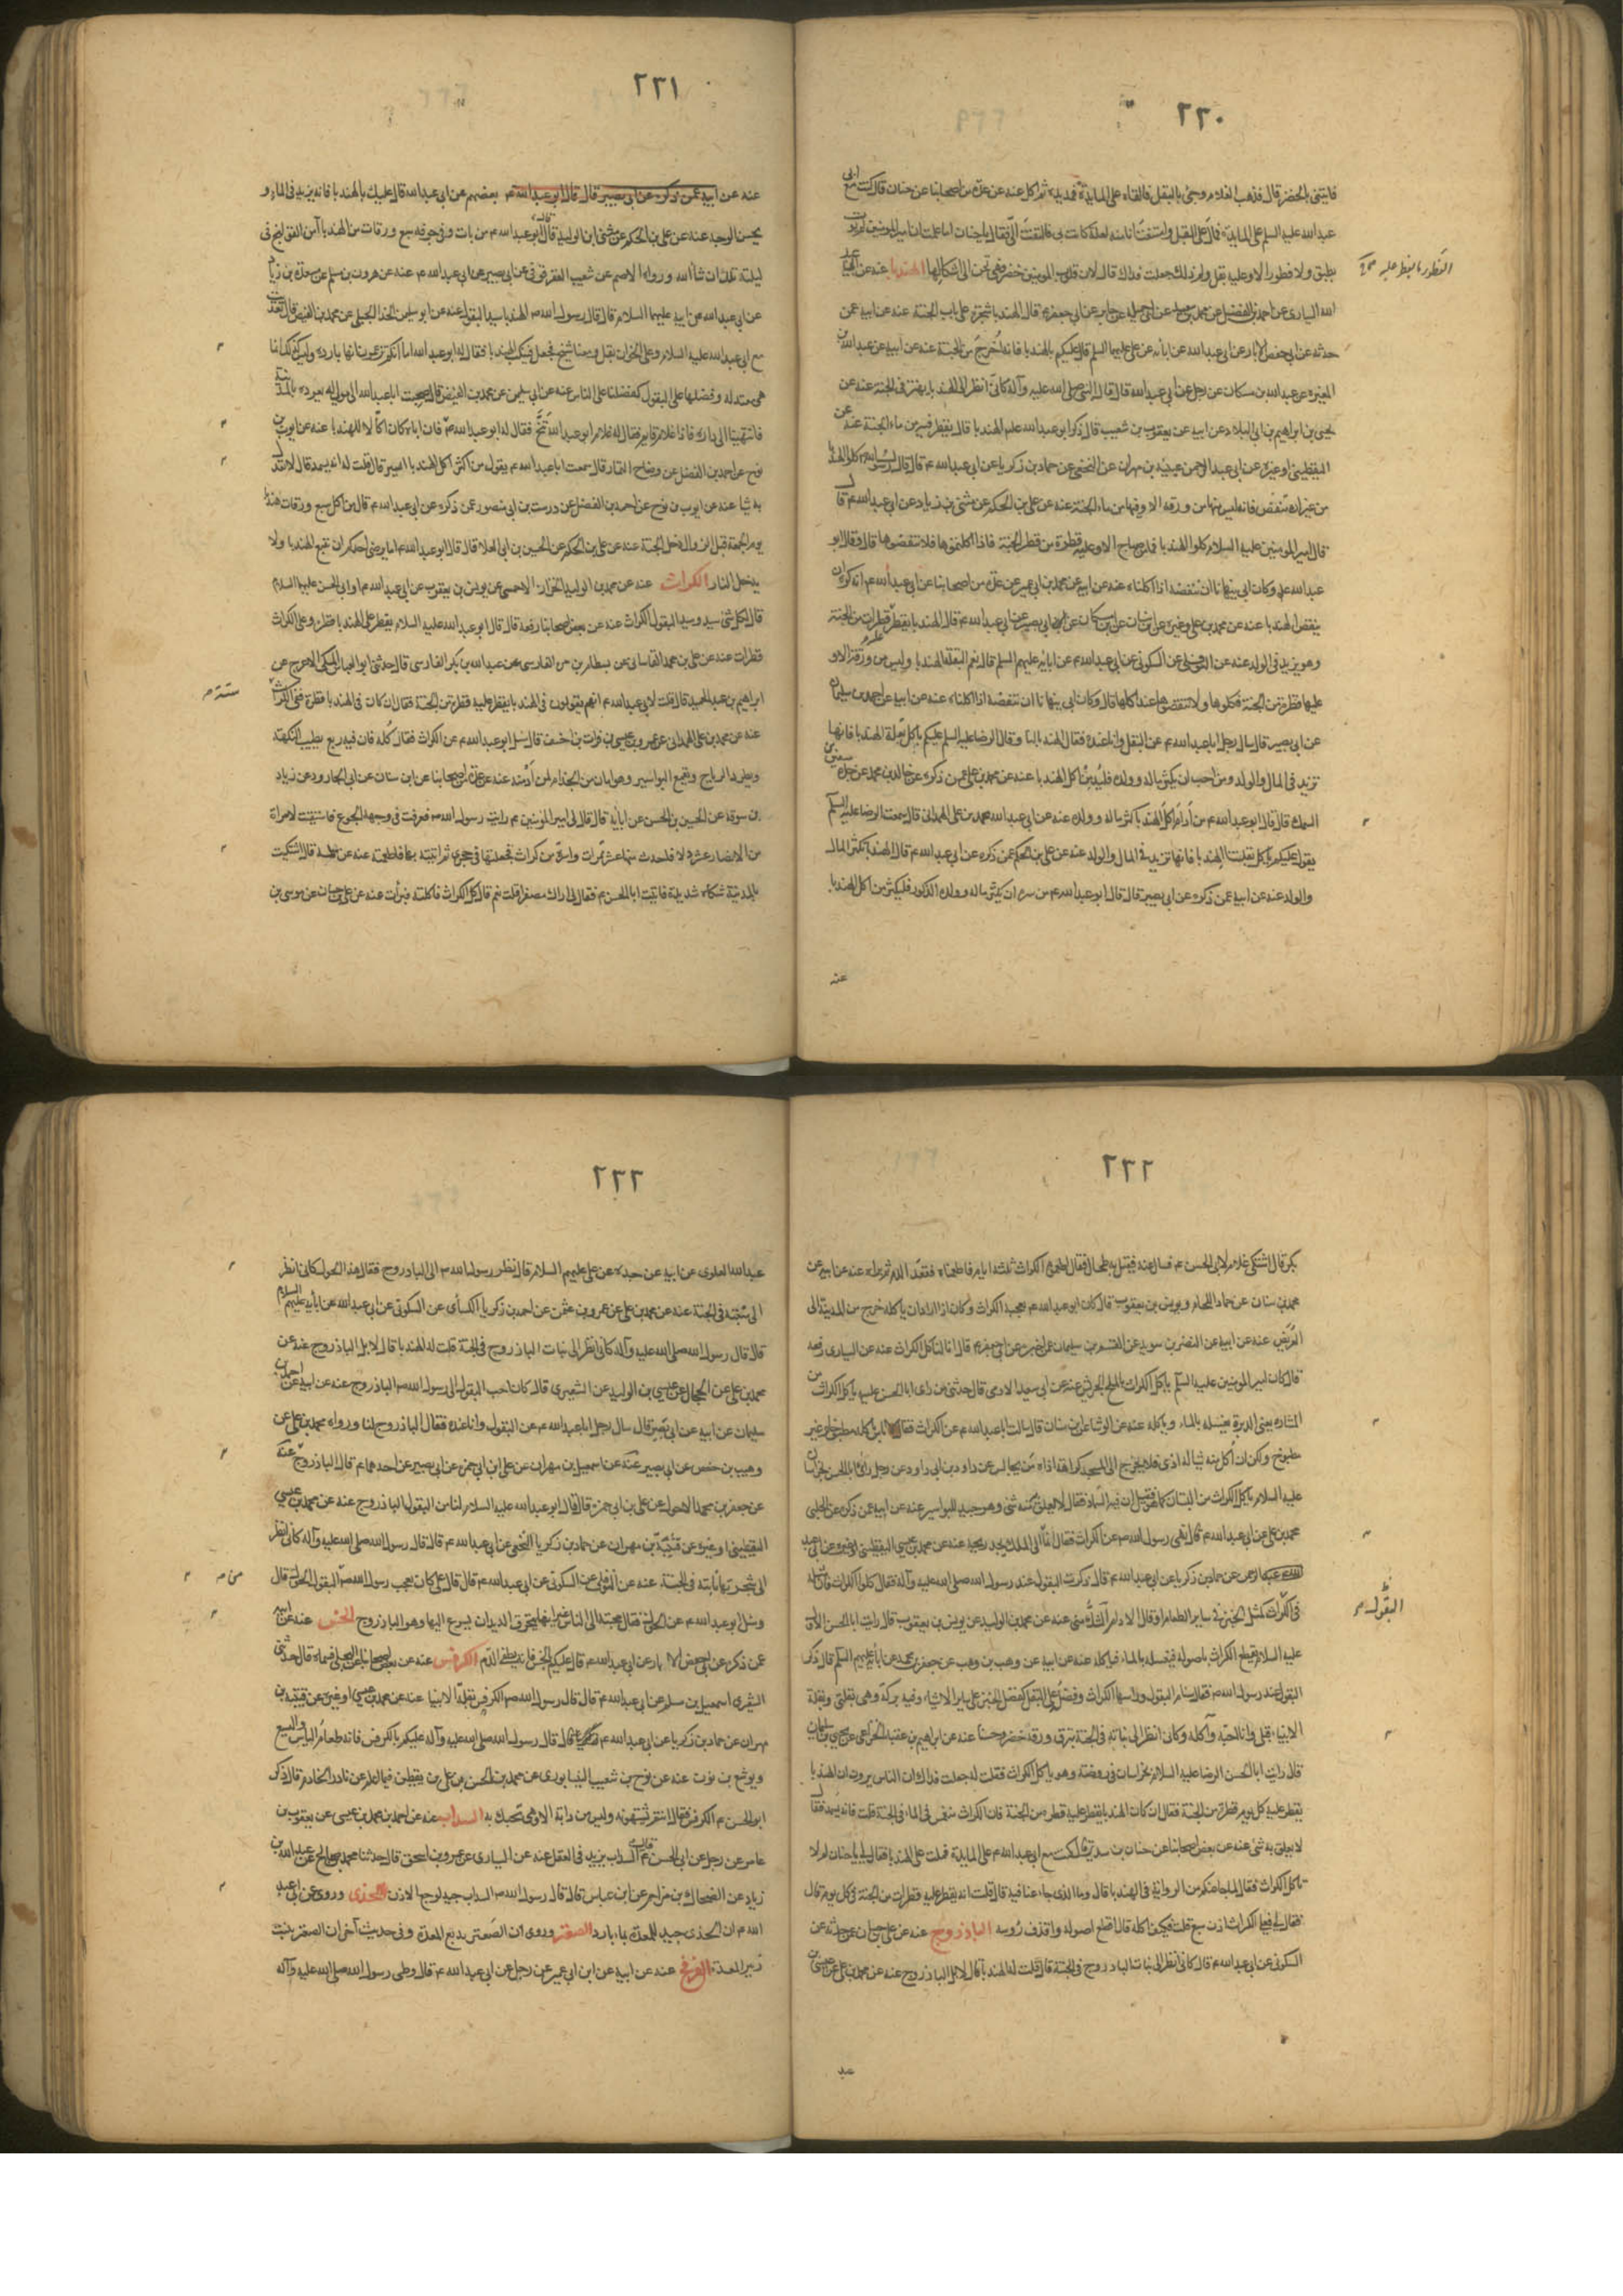 ٢٣٠
فاتينى بالخضر قال فذهب الغلام وجئ بالبقل فالقاه على المائدة فمد يده ثم اكل عنه عن عدة من اصحابنا عن حنان قال كنت مع ابى
عبد الله عليه السلم على المائدة فمال على البقل وامتنعت انا منه لعلة كانت بى فالتفت الى فقال يا حنان اما علمت ان امير المومنين لم يؤت
بطبق ولا فطور الا وعليه بقل قلت ولم ذلك جعلت فداك قال لان قلوب المومنين خضر فهى تحن الى اشكالها الهندبا عنه عن
الله السيارى عن احمد بن الفضيل عن محمد بن سعيد عن ابى جميلة عن جابر عن ابى جعفر م قال الهندبا شجرة على باب الجنة عنه عن ابيه عمن
حدثه عن ابى حفص الابار عن ابى عبد الله عن ابائه عن على عليهما السلم قال عليكم بالهندبا فانه اخرج من الجنة عنه عن ابيه عن عبد الله بن
المغيرة عن عبد الله بن مسكان عن رجل عن ابى عبد الله قال قال النبى صلى الله عليه وآله كانى انظر الى الهندبا يهتز فى الجنة عنه عن
يحيى بن ابراهيم بن ابى البلاد عن ابيه عن يعقوب بن شعيب قال ذكر ابو عبد الله علم الهندبا قال يقطر فيه من ماء الجنة عنه عن
اليقطينى او غيره عن ابى عبد الرحمن عن قتيبة بن مهران عن النخعى عن حماد بن زكريا عن ابى عبد الله م قال قال رسول الله كلوا الهندبا
من غير ان ينفض فانه ليس منها من ورقة الا وفيها من ماء الجنة عنه عن على بن الحكم عن مثنى بن زياد عن ابى عبد الله م قال
قال امير المومنين عليه السلام كلوا الهندبا فما من صباح الا وعليه قطرة من قطر الجنة فاذا اكلتموها فلا تنفضوها قال وقال ابو
عبد الله علم وكان ابى ينهانا ان ننفضه اذا اكلناه عنه عن ابيه عن محمد بن ابى عمير عن عدة من اصحابنا عن ابى عبد الله م انه كره ان
ينفض الهندبا عنه عن محمد بن على وغيره عن ابن سنان عن ابن مسكان عن ابى بصير عن ابى عبد الله م قال الهندبا يقطر قطرات من الجنة
وهو يزيد فى الولد عنه عن النوفلى عن السكونى عن ابى عبد الله م عن ابائه عليهم السلم قال نعم البقلة الهندبا وليس من ورقة الا و
عليها قطرة من الجنة فكلوها ولا تنفضوها عند اكلها قال وكان ابى ينهانا ان ننفضه اذا اكلناه عنه عن ابيه عن احمد بن سليمان
عن ابى بصير قال سال رجل ابا عبد الله م عن البقل وانا عنده فقال الهندبا لنا وقال الرضا عليه السلم عليكم باكل بقلة الهندبا فانها
تزيد فى المال والولد ومن احب ان يكثر ماله وولده فليدمن اكل الهندبا عنه عن محمد بن على عمن ذكره عن خالد بن محمد عن جده سفين بن
السمط قال قال ابو عبد الله م من ادام اكل الهندبا كثر ماله وولده عنه عن ابى عبد الله محمد بن على الهمدانى قال سمعت الرضا عليه السلم
يقول عليكم باكل بقلتنا الهندبا فانها تزيد فى المال والولد عنه عن على بن الحكم عمن ذكره عن ابى عبد الله م قال الهندبا يكثر المال
والولد عنه عن ابيه عمن ذكره عن ابى بصير قال قال ابو عبد الله م من سره ان يكثر ماله وولده الذكور فليكثر من اكل الهندبا
عنه
الفطور ما يفطر عليه
٢٣١
عنه عن ابيه عمن ذكره عن ابى بصير قال قال ابو عبد الله م بعضهم عن ابى عبد الله قال عليك بالهندبا فانه يزيد فى الماء و
يحسن الوجه عنه عن على بن الحكم عن مثنى بن الوليد قال قال ابو عبد الله م من بات وفى جوفه سبع ورقات من الهندبا آمن القولنج فى
ليلته تلك ان شاء الله ورواه الاصم عن شعيب العقرقوفى عن ابى بصير عن ابى عبد الله م عنه عن هرون بن مسلم عن مسعدة بن زياد
عن ابى عبد الله عن ابيه عليهما السلام قال قال رسول الله م الهندبا سيد البقول عنه عن ابو سليمن الحذا الجبلى عن محمد بن الفيض قال تغديت
مع ابى عبد الله عليه السلام وعلى الخوان بقل ومعنا شيخ فجعل يتنكب الهندبا فقال له ابو عبد الله اما انكم تزعمون انها باردة وليس كذلك انما
هى معتدلة وفضلها على البقول كفضلنا على الناس عنه عن ابى سليمن عن محمد بن الفيض قال صحبت ابا عبد الله الى مولى له يعوده بالمدينة
فانتهينا الى داره فاذا غلام قايم فقال له غلام ابو عبد الله تنح فقال له ابو عبد الله مه فان اباه كان اكالا للهندبا عنه عن ايوب بن
نوح عن احمد بن الفضل عن وضاح التمار قال سمعت ابا عبد الله م يقول من اكثر اكل الهندبا ايسر قال قلت له انه يسمد قال لا تعدل
به شيا عنه عن ايوب بن نوح عن احمد بن الفضل عن درست بن ابى منصور عمن ذكره عن ابى عبد الله م قال من اكل سبع ورقات هندبا
يوم الجمعة قبل الزوال دخل الجنة عنه عن على بن الحكم عن الحسين بن ابى العلا قال قال ابو عبد الله اما يرضى احدكم ان يشبع الهندبا ولا
يدخل النار الكراث عنه عن محمد بن الوليد الخزاز الاحمسى عن يونس بن يعقوب عن ابى عبد الله م او ابى الحسن عليهما السلام
قال لكل شئ سيد وسيد البقول الكراث عنه عن بعض اصحابنا رفعه قال قال ابو عبد الله عليه السلام يقطر على الهندبا قطرة وعلى الكراث
قطرات عنه عن على بن محمد القاسانى عن بسطام بن مرة الفارسى عن عبد الله بن بكر الفارسى قال حدثنى ابو العباس المكى الاعرج عن
ابراهيم بن عبد الحميد قال قلت لابى عبد الله م انهم يقولون فى الهندبا يقطر عليه قطرة من الجنة فقال ان كان فى الهندبا قطرة ففى الكراث ستة
عنه عن محمد بن على الهمدانى عن عمرو بن عيسى عن فرات بن احنف قال سئل ابو عبد الله م عن الكراث فقال كله فان فيه اربع يطيب النكهة
ويطرد الرياح ويقمع البواسير وهو امان من الجذام لمن ادمنه عنه عن عدة من اصحابنا عن ابن سنان عن ابى الجارود عن زياد
بن سوقة عن الحسين بن الحسن عن ابائه قال قال لى امير المومنين م رايت رسول الله م فعرفت فى وجهه الجوع فاستقيت لامراة
من الانصار عشر دلاء فاخذت منها عشر تمرات واسرة من كراث فجعلتها فى حجرى ثم اتيته بها فاطعمته عنه عن سلمة قال اشتكيت
بالمدينة شكاة شديدة فاتيت ابا الحسن م فقال لى اراك مصفرا قلت نعم قال كل الكراث فاكلته فبرات عنه عن على بن حسان عن موسى بن
ستة م
٢٣٢
بكر قال اشتكى غلام لابى الحسن م فسال عنه فقيل به طحال فقال اطعموه الكراث ثلثة ايام فاطعمناه فقعد الدم ثم برا عنه عن ابيه عن
محمد بن سنان عن حماد اللحام ويونس بن يعقوب قال كان ابو عبد الله م يعجبه الكراث وكان اذا اراد ان ياكله خرج من المدينة الى
العريض عنه عن ابيه عن النضر بن سويد عن القسم بن سليمان عمن اخبره عن ابى جعفر م قال انا لناكل الكراث عنه عن السيارى رفعه
قال كان امير المومنين عليه السلم ياكل الكراث بالملح الجريش عنه عن ابى سعيد الادمى قال حدثنى من راى ابا الحسن عليه ياكل الكراث من
المشاره يعنى الدبرة يغسله بالماء وياكله عنه عن الوشا عن ابن سنان قال سالت ابا عبد الله م عن الكراث فقال لا باس باكله مطبوخا وغير
مطبوخ ولكن ان اكل منه شيا له اذى فلا يخرج الى المسجد كراهة اذاه من يجالس عن داود بن ابى داود عن رجل راى ابا الحسن بخراسان
عليه السلام ياكل الكراث من البستان كما هو فقيل ان فيه السماد فقال لا يعلق منه شئ وهو جيد للبواسير عنه عن ابيه عمن ذكره عن الحلبى
محمد بن على عن ابى عبد الله م قال نهى رسول الله م عن الكراث فقال لان الملك يجد ريحه عنه عن محمد بن عيسى اليقطينى او غيره عن ابى عبد
الرحمن عن حماد بن زكريا عن ابى عبد الله م قال ذكرت البقول عند رسول الله صلى الله عليه وآله فقال كلوا الكراث فان مثله
فى الكراث كمثل الخبز فى ساير الطعام او قال الادام الشك منى عنه عن محمد بن الوليد عن يونس بن يعقوب قال رايت ابا الحسن الاول
عليه السلام يقطع الكراث باصوله فيغسله بالماء فياكله عنه عن ابيه عن وهب بن وهب عن جعفر بن محمد عن ابائه عليهم السلم قال ذكر
البقول عند رسول الله م فقال سنام البقول وراسها الكراث وفضله على البقل كفضل الخبز على ساير الاشياء وفيه بركة وهى بقلتى وبقلة
الانبياء قبلى وانا احبه وآكله وكانى انظر الى نباته فى الجنة تبرق ورقه خضرة وحسنا عنه عن ابراهيم بن عقبة الخزاعى عن يحيى بن سليمان
قال رايت ابا الحسن الرضا عليه السلام بخراسان فى روضة وهو ياكل الكراث فقلت له جعلت فداك ان الناس يروون ان الهندبا
يقطر عليه كل يوم قطرة من الجنة فقال ان كان الهندبا يقطر عليه قطرة من الجنة فان الكراث منغمس فى الماء فى الجنة قلت فانه يسمد فقال
لا يعلق به شئ عنه عن بعض اصحابنا عن حنان بن سدير قال كنت مع ابى عبد الله م على المائدة فملت على الهندبا فقال لى يا حنان لم لا
تاكل الكراث فقلت لما جاء عنكم من الرواية فى الهندبا قال وما الذى جاء عنا فيه قال قلت انه يقطر عليه قطرات من الجنة فى كل يوم قال
فقال لى فعلى الكراث اذن سبع قلت فكيف اكله قال اقطع اصوله واقذف رؤسه الباذروج عنه عن على بن حسان عمن حدثه عن
السكونى عن ابى عبد الله م قال كانى انظر الى نبات الباذروج فى الجنة قال قلت له الهندبا قال لا بل الباذروج عنه عن محمد بن على عن عيسى بن
عبد
البقول م
٢٣٣
عبد الله العلوى عن ابيه عن جده عن على عليهم السلام قال نظر رسول الله م الى الباذروج فقال هذا الحوك كانى انظر
الى منبته فى الجنة عنه عن محمد بن على عن عمرو بن عثمن عن احمد بن زكريا الكسائى عن السكونى عن ابى عبد الله عن ابائه عليهم السلام
قال قال رسول الله صلى الله عليه وآله كانى انظر الى نبات الباذروج فى الجنة قلت له الهندبا قال لا بل الباذروج عنه عن
محمد بن على عن الحجال عن عيسى بن الوليد عن الشعيرى قال كان احب البقول الى رسول الله م الباذروج عنه عن ابيه عن احمد بن
سليمان عن ابيه عن ابى بصير قال سال رجل ابا عبد الله م عن البقول وانا عنده فقال الباذروج لنا ورواه محمد بن على عن
وهيب بن حفص عن ابى بصير عنه عن اسمعيل بن مهران عن على بن ابى حمزة عن ابى بصير عن احدهما م قال الباذروج عنه
عن جعفر بن محمد الاحول عن على بن ابى حمزة قال قال ابو عبد الله عليه السلام لنا من البقول الباذروج عنه عن محمد بن عيسى
اليقطينى او غيره عن قتيبة بن مهران عن حماد بن زكريا النخعى عن ابى عبد الله م قال قال رسول الله صلى الله عليه وآله كانى انظر
الى شجرتها نابتة فى الجنة عنه عن النوفلى عن السكونى عن ابى عبد الله م قال قال على كان يعجب رسول الله م البقول الحوك قال
وسئل ابو عبد الله م عن
الخس عنه عن ابيه
عمن ذكره عن ابى حفص الابار عن ابى عبد الله م قال عليكم بالخس فانه يطفى الدم الكرفس عنه عن بعض اصحابنا
اسمعيل بن مسلم عن ابى عبد الله م قال قال رسول الله م الكرفس بقلة الانبيا عنه عن محمد بن عيسى او غيره عن قتيبة بن
مهران عن حماد بن زكريا عن ابى عبد الله م قال قال رسول الله صلى الله عليه وآله عليكم بالكرفس فانه طعام الياس واليسع
ويوشع بن نون عنه عن نوح بن شعيب النيسابورى عن محمد بن الحسن بن على بن يقطين فيما اعلم عن نادر الخادم قال ذكر
ابو الحسن م الكرفس فقال انتم تشتهونه وليس من دابة الا وهى تحتك به السداب عنه عن احمد بن محمد بن عيسى عن يعقوب بن
عامر عن رجل عن ابى الحسن م قال السداب يزيد فى العقل عنه عن السيارى عن عمرو بن اسحق قال حدثنا محمد بن صالح عن عبد الله بن
زياد عن الضحاك بن مزاحم عن ابن عباس قال قال رسول الله م السداب جيد لوجع الاذن الحزى وروى عن ابى عبد
الله م ان الحزى جيد للمعدة بماء بارد الصعتر وروى ان الصعتر يدبغ المعدة وفى حديث آخر ان الصعتر ينبت
زئبر المعدة الفرفخ عنه عن ابيه عن ابن ابى عمير عن رجل عن ابى عبد الله م قال وطى رسول الله صلى الله عليه وآله